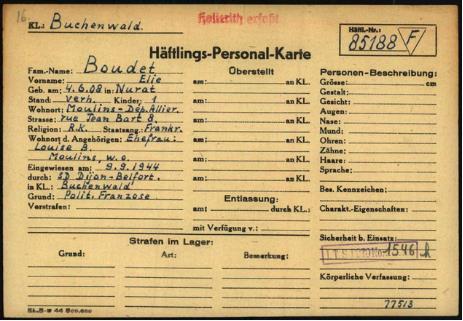 16.
KL: Buchenwald.
Hollerith erfaßt
Häftl.-Nr.:
85188 F
Häftlings-Personal-Karte
Fam.-Name: Boudet
Vorname: Elie
Geb. am: 4.6.08 in Nurat
Stand: verh. Kinder: 1
Wohnort: Moulins-Dep. Allier.
Strasse: rue Jean Bart 8.
Religion: R.K. Staatsang. Frankr.
Wohnort d. Angehörigen: Ehefrau:
Louise B.
Moulins, w.o.
Eingewiesen am: 9.9.1944
durch: SD Dijon-Belfort.
in KL.: Buchenwald
Grund: Polit. Franzose
Vorstrafen:
Überstellt
am: an KL.
am: an KL.
am: an KL.
am: an KL.
am: an KL.
am: an KL.
Entlassung:
am: durch KL.:
mit Verfügung v.:
Personen-Beschreibung:
Grösse: cm
Gestalt:
Gesicht:
Augen:
Nase:
Mund:
Ohren:
Zähne:
Haare:
Sprache:
Bes. Kennzeichen:
Charakt.-Eigenschaften:
Sicherheit b. Einsatz:
ITS FOTO No 1546
Körperliche Verfassung:
77513
Strafen im Lager:
Grund: Art: Bemerkung: